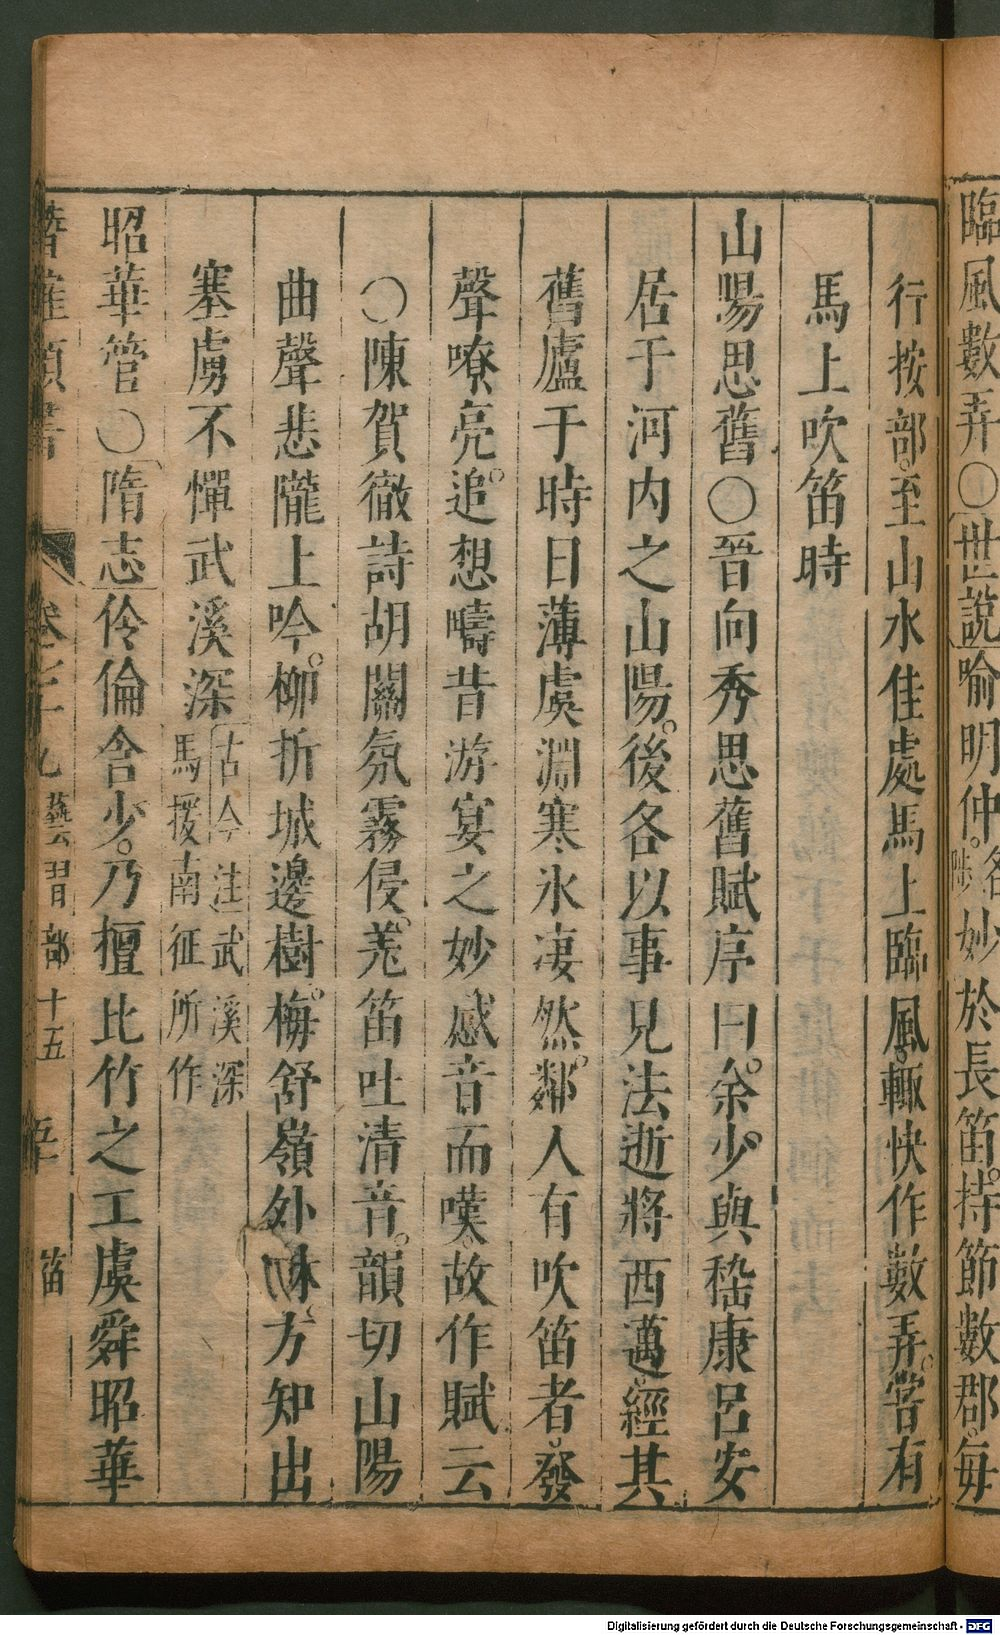 臨風數弄○世說喻明仲名陟妙於長笛。持節數郡。每
行按部。至山水佳處馬上臨風。輒快作數弄。嘗有
馬上吹笛時
山陽思舊○晉向秀思舊賦序曰。余少與嵇康呂安
居于河内之山陽。後各以事見法逝將西邁經其
舊廬于時日薄虞淵寒氷凄然。鄰人有吹笛者。發
聲嘹亮。追想疇昔游宴之妙感音而嘆。故作賦云
○陳賀徹詩胡關氛霧侵。羗笛吐清音。韻切山陽
曲聲悲隴上吟。柳折城邊樹。梅舒嶺外林。方知出
塞虜不憚武溪深古今注武溪深
馬援南征所作
昭華管○隋志伶倫含少。乃擅比竹之工虞舜昭華
卷七十九 藝習部十五 笛
Digitalisierung gefördert durch die Deutsche Forschungsgemeinschaft - DFG